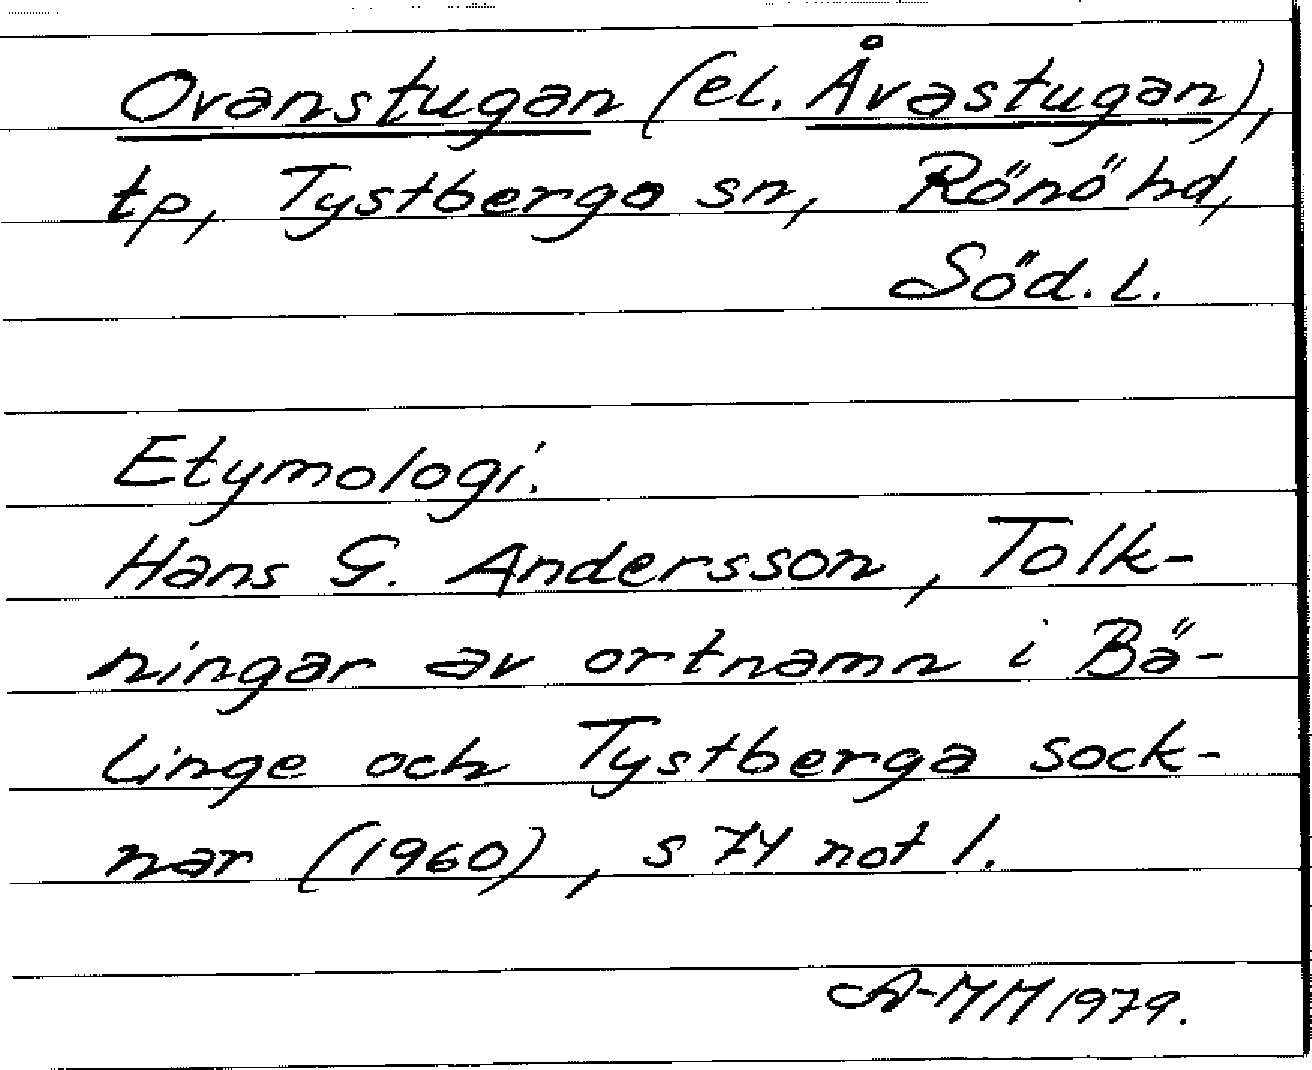 Ovanstugan (el. Åvastugan),
tp, Tystberga sn, Rönö hd,
Söd. l.
Etymologi.
Hans G. Andersson, Tolk-
ningar av ortnamn i Bä-
linge och Tystberga sock-
nar (1960), s 74 not 1.
A-MM 1979.